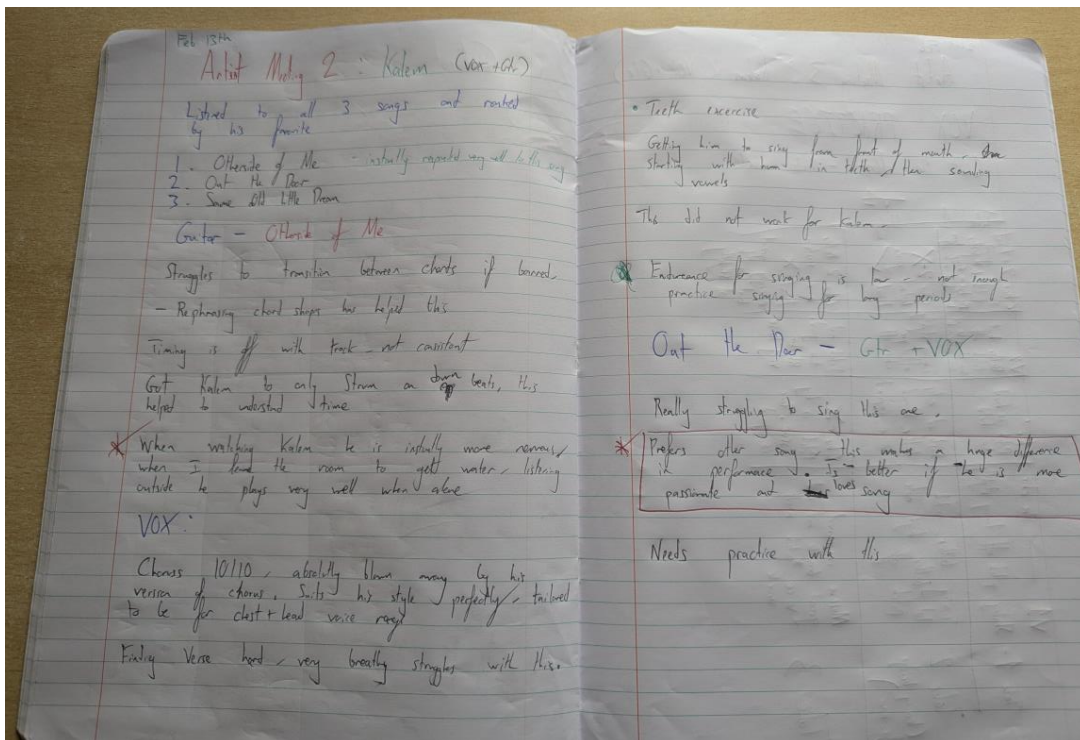 Feb 13th
Artist Meeting 2 : Kalem (VOX + Gtr)
Listened to all 3 songs and ranked
by his favorite
1. Otherside of Me - instantly responded very well to this song
2. Out the Door
3. Same Old Little Dream
Guitar - Otherside of Me
Struggles to transition between chords if barred.
- Rephrasing chord shapes has helped this
Timing is off with track - not consistent
Got Kalem to only Strum on down beats, this
helped to understand time
When watching Kalem he is instantly more nervous,
when I leave the room to get water, listening
outside he plays very well when alone
VOX:
Chorus 10/10, absolutly blown away by his
version of chorus. Suits his style perfectly, tailored
to be for chest + head voice range
Finding Verse hard, very breathy struggles with this.
• Teeth excercise
Getting him to sing from front of mouth,
starting with hum in teeth, then sounding
vowels
This did not work for Kalem.
Endureance for singing is low - not enough
practice singing for long periods
Out the Door - Gtr + VOX
Really struggling to sing this one.
Prefers other song, this makes a huge difference
in performance. Is better if he is more
passionate and loves song
Needs practice with this